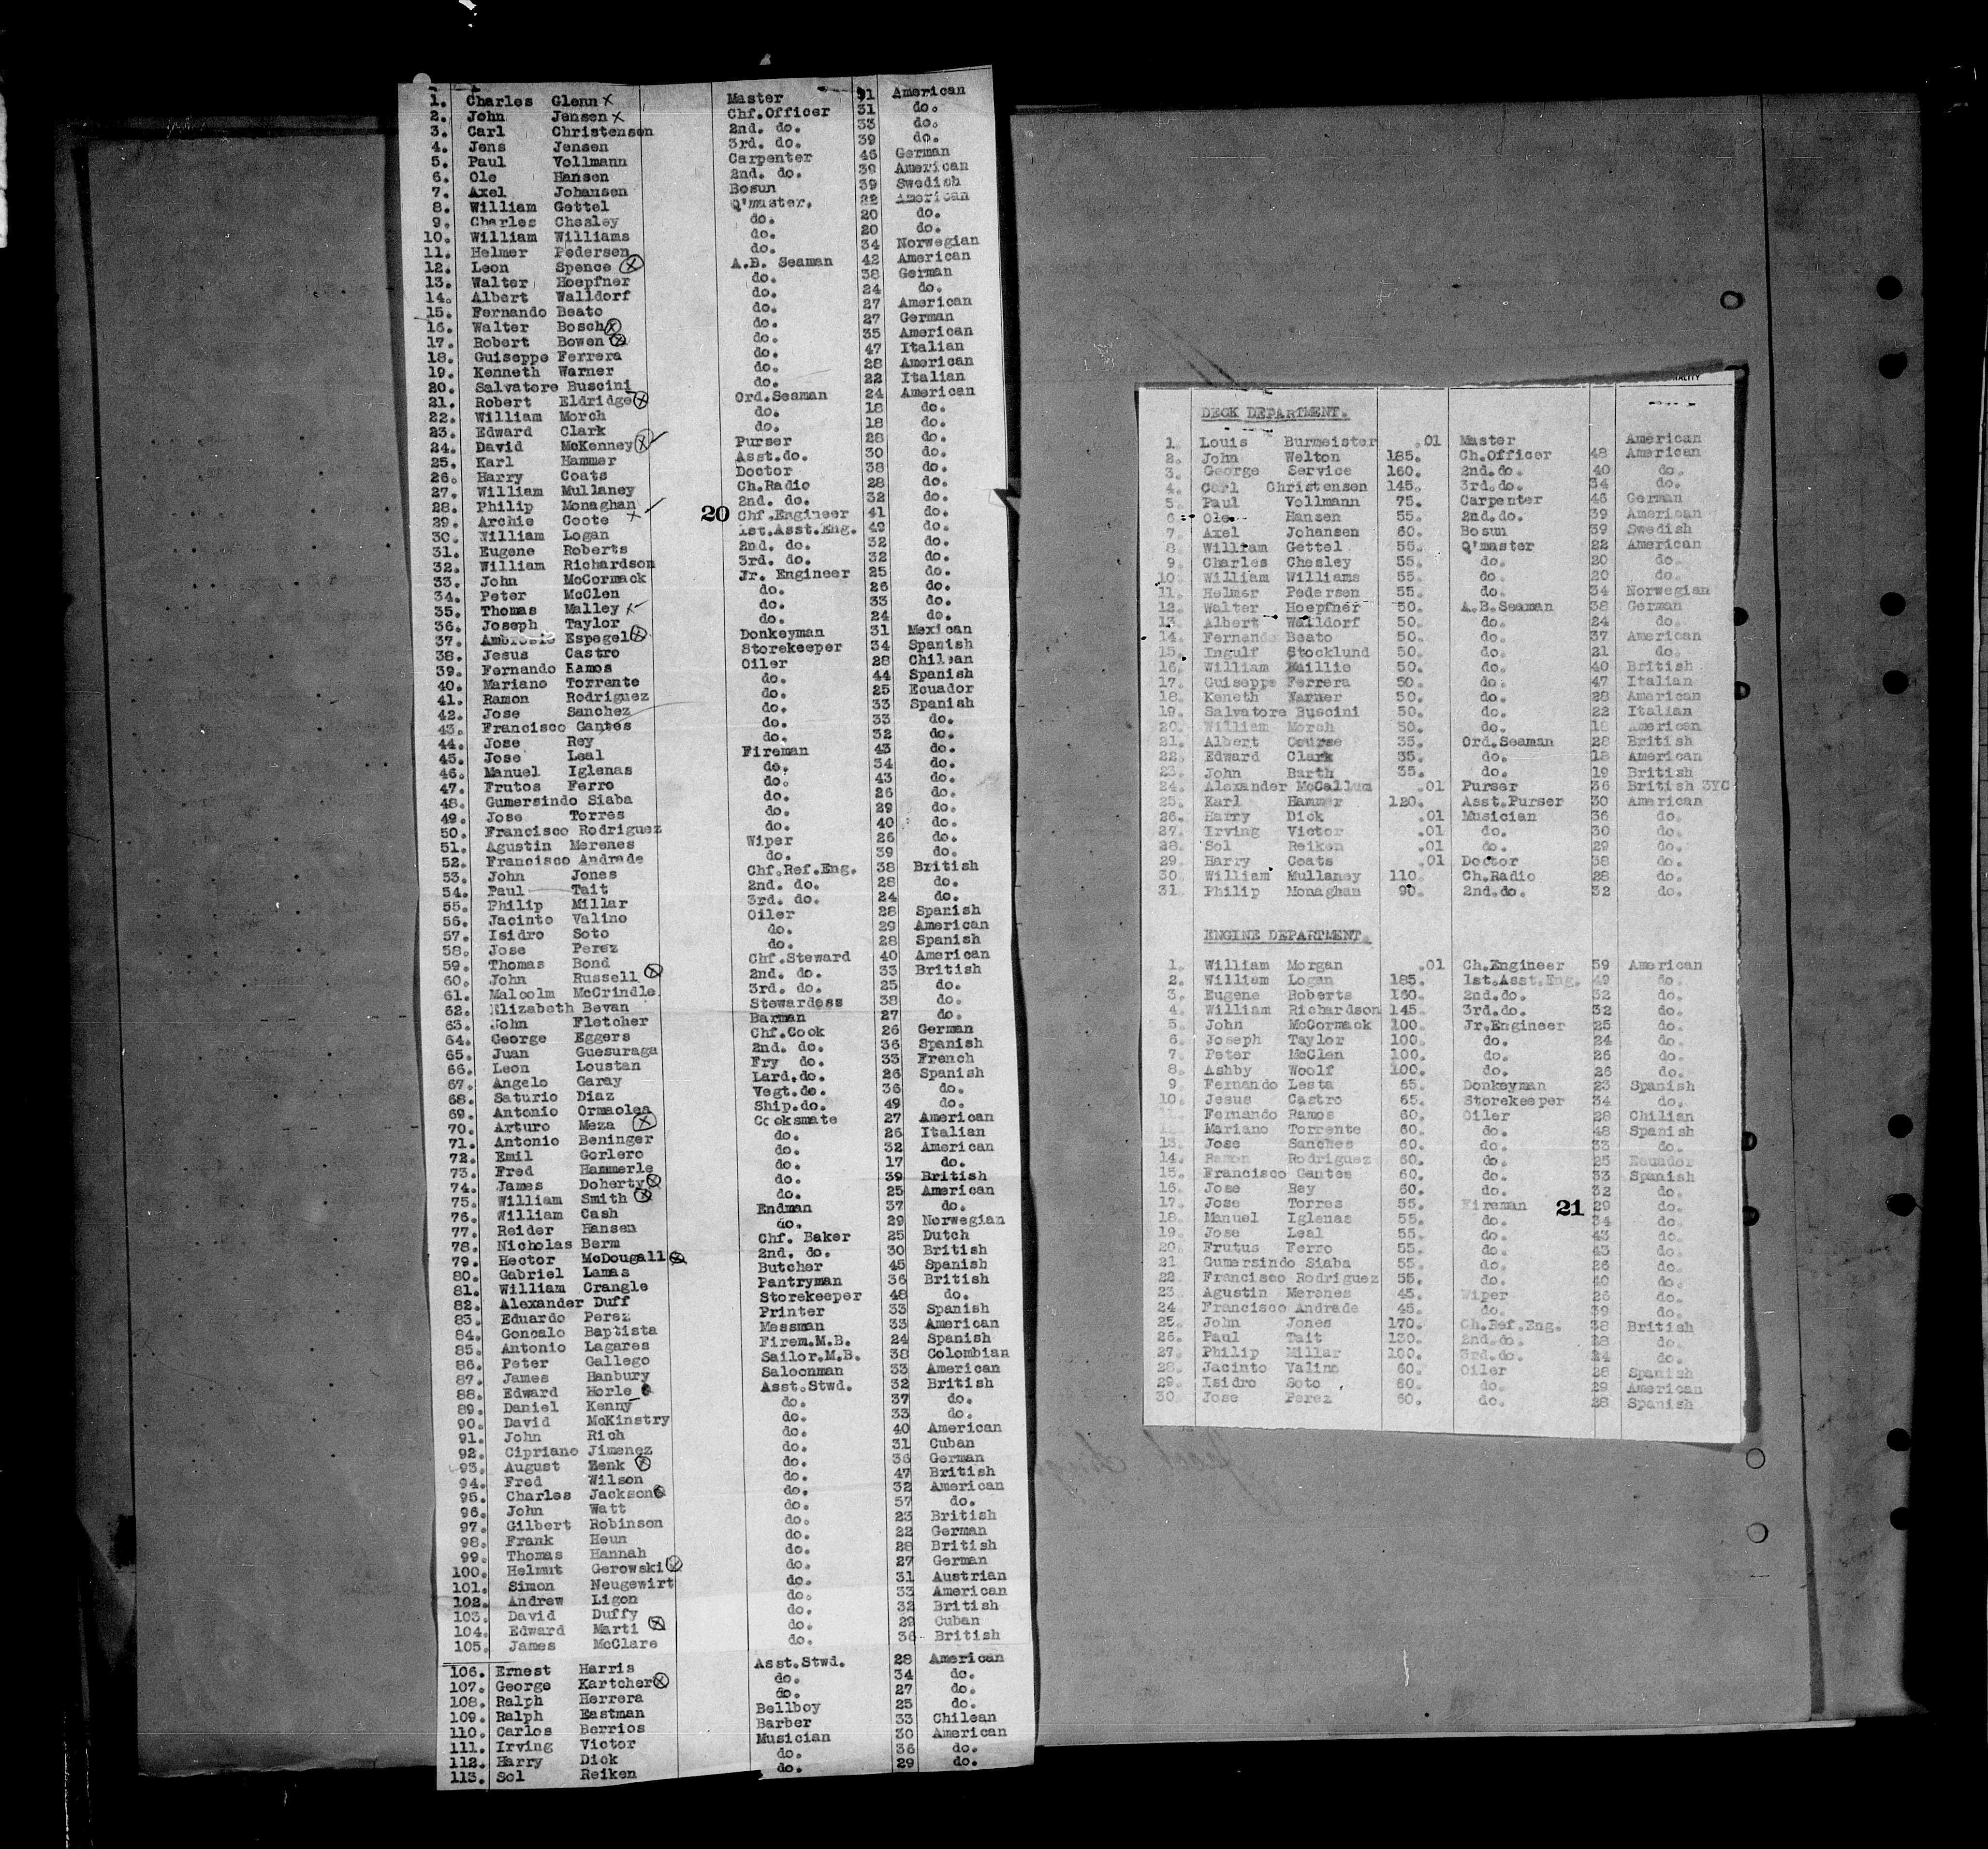 1. Charles Glenn x Master 31 American
2. John Jensen x Chf.Officer 31 do.
3. Carl Christensen 2nd. do. 33 do.
4. Jens Jensen 3rd. do. 39 do.
5. Paul Vollmann Carpenter 46 German
6. Ole Hansen 2nd. do. 39 American
7. Axel Johansen Bosun 39 Swedish
8. William Gettel Q'master. 22 American
9. Charles Chesley do. 20 do.
10. William Williams do. 20 do.
11. Helmer Pedersen do. 34 Norwegian
12. Leon Spence A.B. Seaman 42 American
13. Walter Hoepfner do. 38 German
14. Albert Walldorf do. 24 do.
15. Fernando Beato do. 27 American
16. Walter Bosch do. 27 German
17. Robert Bowen do. 35 American
18. Guiseppe Ferrera do. 47 Italian
19. Kenneth Warner do. 28 American
20. Salvatore Buscini do. 22 Italian
21. Robert Eldridge Ord.Seaman 24 American
22. William Morch do. 18 do.
23. Edward Clark do. 18 do.
24. David McKenney Purser 28 do.
25. Karl Hammer Asst.do. 30 do.
26. Harry Coats Doctor 38 do.
27. William Mullaney Ch.Radio 28 do.
28. Philip Monaghan 2nd. do. 32 do.
29. Archie Coote x Chf.Engineer 41 do.
20
30. William Logan 1st.Asst.Eng. 49 do.
31. Eugene Roberts 2nd. do. 32 do.
32. William Richardson 3rd. do. 32 do.
33. John McCormack Jr. Engineer 25 do.
34. Peter McClen do. 26 do.
35. Thomas Malley x do. 33 do.
36. Joseph Taylor do. 24 do.
37. Espegel Donkeyman 31 Mexican
38. Jesus Castro Storekeeper 34 Spanish
39. Fernando Ramos Oiler 28 Chilean
40. Mariano Torrente do. 44 Spanish
41. Ramon Rodriguez do. 25 Ecuador
42. Jose Sanchez do. 33 Spanish
43. Francisco Gantes do. 33 do.
44. Jose Rey do. 32 do.
45. Jose Leal Fireman 43 do.
46. Manuel Iglenas do. 34 do.
47. Frutos Ferro do. 43 do.
48. Gumersindo Siaba do. 26 do.
49. Jose Torres do. 29 do.
50. Francisco Rodriguez do. 40 do.
51. Agustin Merenes Wiper 26 do.
52. Francisco Andrade do. 39 do.
53. John Jones Chf.Ref.Eng. 38 British
54. Paul Tait 2nd. do. 28 do.
55. Philip Millar 3rd. do. 24 do.
56. Jacinto Valino Oiler 28 Spanish
57. Isidro Soto do. 29 American
58. Jose Perez do. 28 Spanish
59. Thomas Bond Chf.Steward 40 American
60. John Russell 2nd. do. 33 British
61. Malcolm McCrindle 3rd. do. 25 do.
62. Elizabeth Bevan Stewardess 38 do.
63. John Fletcher Barman 27 do.
64. George Eggers Chf.Cook 26 German
65. Juan Guesuraga 2nd. do. 36 Spanish
66. Leon Loustan Fry do. 33 French
67. Angelo Garay Lard.do. 26 Spanish
68. Saturio Diaz Vegt.do. 36 do.
69. Antonio Ormaolea Ship.do. 49 do.
70. Arturo Meza Cooksmate 27 American
71. Antonio Beninger do. 26 Italian
72. Emil Gorlero do. 32 American
73. Fred Hammerle do. 17 do.
74. James Doherty do. 39 British
75. William Smith do. 25 American
76. William Cash Endman 37 do.
77. Reider Hansen do. 29 Norwegian
78. Nicholas Berm Chf. Baker 25 Dutch
79. Hector McDougall 2nd. do. 30 British
80. Gabriel Lamas Butcher 45 Spanish
81. William Crangle Pantryman 36 British
82. Alexander Duff Storekeeper 48 do.
83. Eduardo Perez Printer 33 Spanish
84. Goncalo Baptista Messman 33 American
85. Antonio Lagares Firem.M.B. 24 Spanish
86. Peter Gallego Sailor.M.B. 38 Colombian
87. James Hanbury Saloonman 33 American
88. Edward Horle Asst.Stwd. 32 British
89. Daniel Kenny do. 37 do.
90. David McKinstry do. 33 do.
91. John Rich do. 40 American
92. Cipriano Jimenez do. 31 Cuban
93. August Zenk do. 36 German
94. Fred Wilson do. 47 British
95. Charles Jackson do. 32 American
96. John Watt do. 57 do.
97. Gilbert Robinson do. 23 British
98. Frank Heun do. 22 German
99. Thomas Hannah do. 28 British
100. Helmut Gerowski do. 27 German
101. Simon Neugewirt do. 31 Austrian
102. Andrew Ligon do. 33 American
103. David Duffy do. 32 British
104. Edward Marti do. 29 Cuban
105. James McClare do. 36 British
106. Ernest Harris Asst.Stwd. 28 American
107. George Kartcher do. 34 do.
108. Ralph Herrera do. 27 do.
109. Ralph Eastman Bellboy 25 do.
110. Carlos Berrios Barber 33 Chilean
111. Irving Victor Musician 30 American
112. Harry Dick do. 36 do.
113. Sol Reiken do. 29 do.
DECK DEPARTMENT.
1. Louis Burmeister .01 Master American
2. John Welton 185. Ch.Officer 48 American
3. George Service 160. 2nd.do. 40 do.
4. Carl Christensen 145. 3rd.do. 34 do.
5. Paul Vollmann 75. Carpenter 46 German
6. Ole Hansen 55. 2nd.do. 39 American
7. Axel Johansen 60. Bosun 39 Swedish
8. William Gettel 55. Q'master 22 American
9. Charles Chesley 55. do. 20 do.
10. William Williams 55. do. 20 do.
11. Helmer Pedersen 55. do. 34 Norwegian
12. Walter Hoepfner 50. A.B.Seaman 38 German
13. Albert Walldorf 50. do. 24 do.
14. Fernando Beato 50. do. 37 American
15. Ingulf Stocklund 50. do. 21 do.
16. William 50. do. 40 British
17. Guiseppe Ferrera 50. do. 47 Italian
18. Keneth Warner 50. do. 28 American
19. Salvatore Buscini 50. do. 22 Italian
20. William Morch 50. do. 18 American
21. Albert Course 35. Ord.Seaman 28 British
22. Edward Clark 35. do. 18 American
23. John Barth 35. do. 19 British
24. Alexander McCallum .01 Purser 36 British 3YC
25. Karl Hammer 120. Asst.Purser 30 American
26. Harry Dick .01 Musician 36 do.
27. Irving Victor .01 do. 30 do.
28. Sol Reiken .01 do. 29 do.
29. Harry Coats .01 Doctor 38 do.
30. William Mullaney 110. Ch.Radio 28 do.
31. Philip Monaghan 90. 2nd.do. 32 do.
ENGINE DEPARTMENT.
1. William Morgan .01 Ch.Engineer 59 American
2. William Logan 185. 1st.Asst.Eng. 49 do.
3. Eugene Roberts 160. 2nd.do. 32 do.
4. William Richardson 145. 3rd.do. 32 do.
5. John McCormack 100. Jr.Engineer 25 do.
6. Joseph Taylor 100. do. 24 do.
7. Peter McClen 100. do. 26 do.
8. Ashby Woolf 100. do. 26 do.
9. Fernando Lesta 65. Donkeyman 23 Spanish
10. Jesus Castro 65. Storekeeper 34 do.
11. Fernando Ramos 60. Oiler 28 Chilian
12. Mariano Torrente 60. do. 48 Spanish
13. Jose Sanches 60. do. 33 do.
14. Ramon Rodriguez 60. do. 25 Ecuador
15. Francisco Gantes 60. do. 33 Spanish
16. Jose Rey 60. do. 32 do.
17. Jose Torres 55. Fireman 29 do.
21
18. Manuel Iglenas 55. do. 34 do.
19. Jose Leal 55. do. 43 do.
20. Frutus Ferro 55. do. 43 do.
21 Gumersindo Siaba 55. do. 26 do.
22. Francisco Rodriguez 55. do. 40 do.
23. Agustin Merenes 45. Wiper 26 do.
24. Francisco Andrade 45. do. 39 do.
25. John Jones 170. Ch.Ref.Eng. 38 British
26. Paul Tait 130. 2nd.do. 28 do.
27. Philip Millar 100. 3rd.do. 24 do.
28. Jacinto Valino 60. Oiler 28 Spanish
29. Isidro Soto 60. do. 29 American
30. Jose Perez 60. do. 28 Spanish